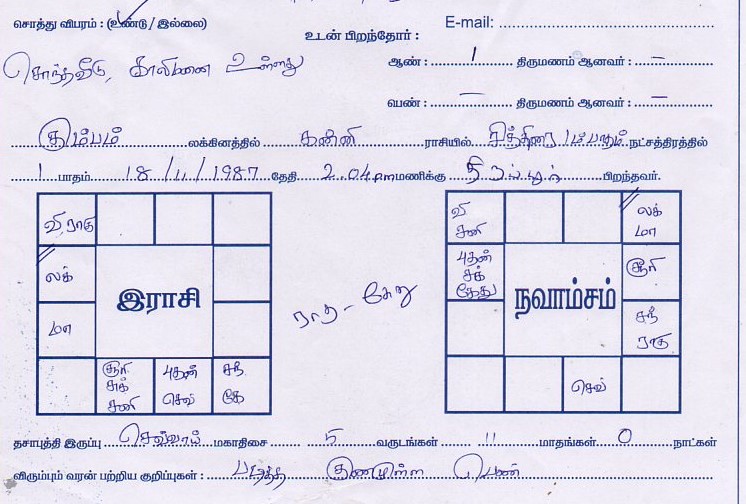 சொத்து விபரம் : (உண்டு / இல்லை)
E-mail:
உடன் பிறந்தோர் :
சொந்தவீடு, காலிமனை உள்ளது
ஆண் : 1 திருமணம் ஆனவர் : –
பெண் : – திருமணம் ஆனவர் : –
கும்பம் லக்கினத்தில் கன்னி ராசியில் சித்திரை 1ம் பாதம் நட்சத்திரத்தில்
1 பாதம் 18/11/1987 தேதி 2.04 pm மணிக்கு திருப்பூர் பிறந்தவர்.
வி ராகு
லக்
மா
சூரி சுக் சனி
புதன் செவ்
சந் கே
இராசி
ராகு - கேது
வி சனி
லக் மா
புதன் சுக் கேது
சூரி
சந் ராகு
செவ்
நவாம்சம்
தசாபுத்தி இருப்பு செவ்வாய் மகாதிசை 5 வருடங்கள் 11 மாதங்கள் 0 நாட்கள்
விரும்பும் வரன் பற்றிய குறிப்புகள் : படித்த குணமுள்ள பெண்